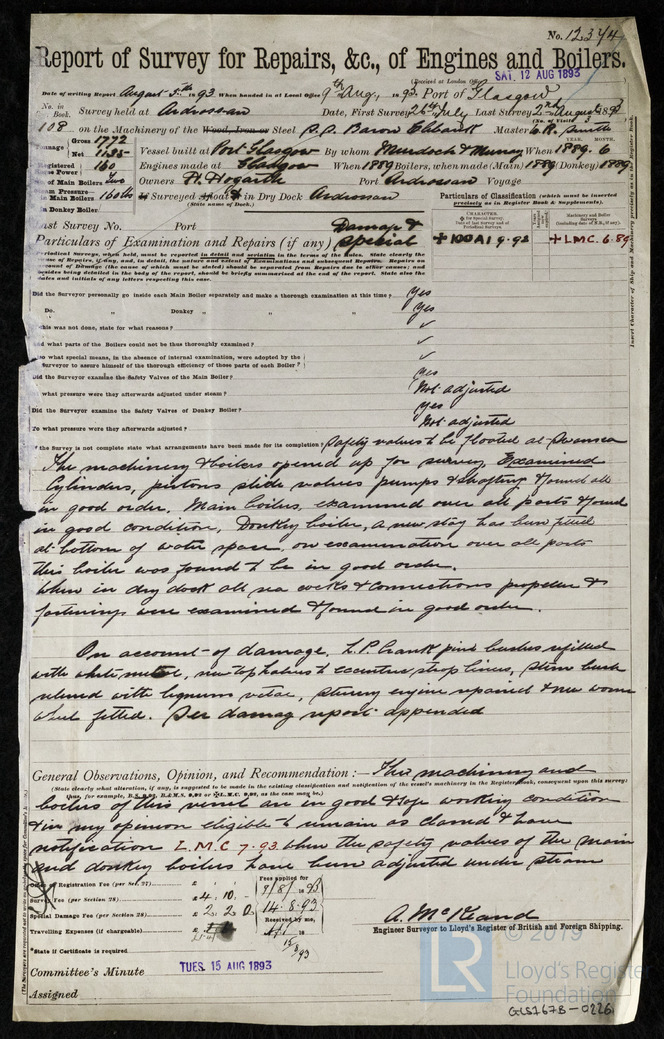 No. 12344
Report of Survey for Repairs, &c., of Engines and Boilers.
(Received at London Office
SAT. 12 AUG 1893
Date of writing Report August 5th 1893 When handed in at Local Office 9th Aug. 1893. Port of Glasgow
No. in Book. Survey held at Ardrossan Date, First Survey 26th July Last Survey 2nd August 1893
108 on the Machinery of the Wood, Iron or Steel S.S. Baron Elibank Master R. Smith
Gross 1772
Net 1135 Vessel built at Port Glasgow By whom Murdoch & Murray When 1889. 6
Registered 160 Engines made at Glasgow When 1889 Boilers, when made (Main) 1889 (Donkey) 1889
of Main Boilers Two Owners H. Hogarth Port Ardrossan Voyage
Main Boilers 160 lbs If Surveyed Afloat or in Dry Dock Ardrossan
(State name of Dock.)
Donkey Boiler.
Particulars of Classification (which must be inserted precisely as in Register Book.
Last Survey No. Port
Damage &
Particulars of Examination and Repairs (if any) Special
+100A1 9.92 +LMC. 6.89
Did the Surveyor personally go inside each Main Boiler separately and make a thorough examination at this time? Yes
Do. " Donkey " " " Yes
this was not done, state for what reasons? ✓
what parts of the Boilers could not be thus thoroughly examined? ✓
what special means, in the absence of internal examination, were adopted by the
Surveyor to assure himself of the thorough efficiency of those parts of each Boiler? ✓
Did the Surveyor examine the Safety Valves of the Main Boiler? Yes
what pressure were they afterwards adjusted under steam? Not adjusted
Did the Surveyor examine the Safety Valves of Donkey Boiler? Yes
To what pressure were they afterwards adjusted? Not adjusted
the Survey is not complete state what arrangements have been made for its completion? Safety valves to be floated at Swansea
The machinery & boilers opened up for survey, Examined
Cylinders, pistons slide valves pumps & shafting & found all
in good order. Main boilers, examined over all parts & found
in good condition, Donkey boiler, a new stay has been fitted
at bottom of water space, on examination over all parts
this boiler was found to be in good order.
When in dry dock all sea cocks & connections propeller &
fastenings were examined & found in good order.
On account of damage, L.P. Crank pins bushes refitted
with white metal, new top halves to eccentric strap liners, stern bush
relined with lignum vitae, steering engine repaired & new worm
wheel fitted. See damage report appended
General Observations, Opinion, and Recommendation:— The machinery and
(State clearly what alteration, if any, is suggested to be made in the existing classification and notification of the vessel's machinery in the Register Book, consequent upon this survey:
boilers of this vessel are in good & safe working condition
& in my opinion eligible to remain as classed & have
notification L.M.C 7.93. when the safety valves of the main
and donkey boilers have been adjusted under steam
Office or Registration Fee (per Sec. 27) £
Survey Fee (per Section 28) £ 4. 10. -
Special Damage Fee (per Section 28) £ 2. 2. 0
Travelling Expenses (if chargeable) £
Fees applied for
9/8/1893
14.8.93
Received by me,
15/8/93
*State if Certificate is required
A. McKeand
Engineer Surveyor to Lloyd's Register of British and Foreign Shipping.
Committee's Minute TUES. 15 AUG 1893
Assigned
© 2019
LR
Lloyd's Register
Foundation
GLS167B-0226